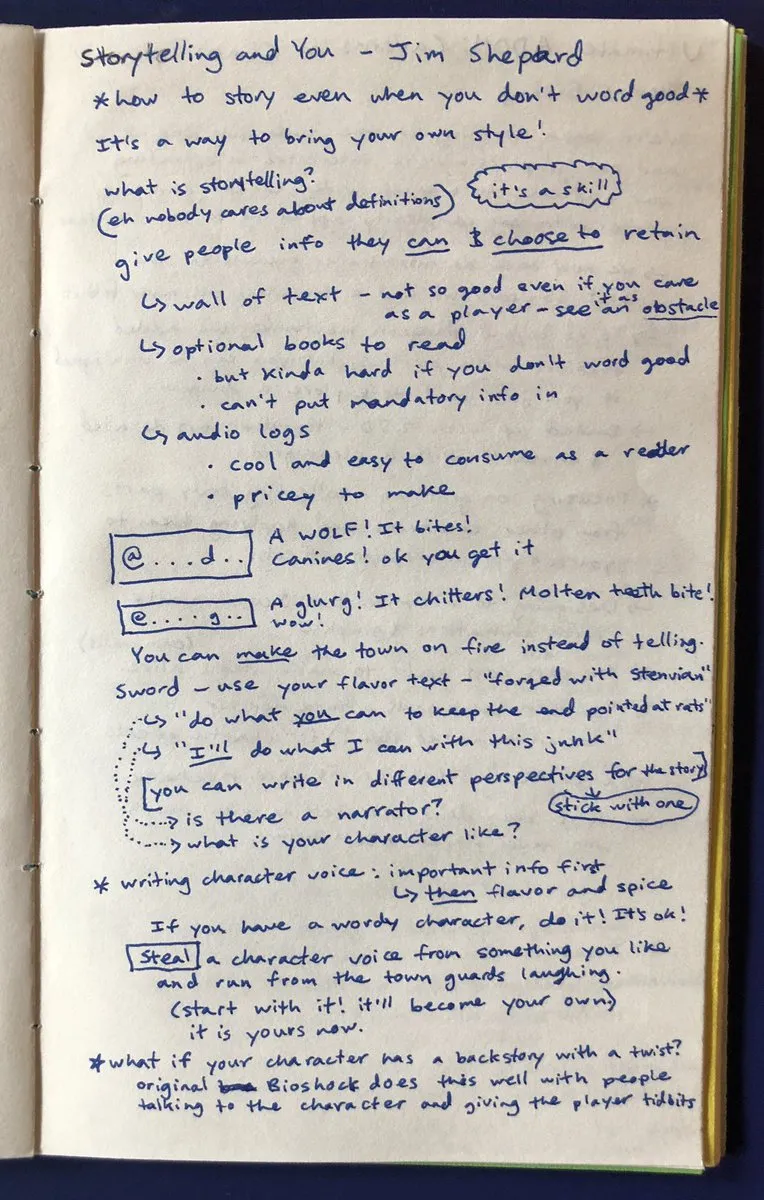 Storytelling and You - Jim Shepard
*how to story even when you don't word good*
It's a way to bring your own style!
what is storytelling?
(eh nobody cares about definitions)
it's a skill
give people info they can & choose to retain
↳ wall of text - not so good even if you care
as a player - see it as an obstacle
↳ optional books to read
· but kinda hard if you don't word good
· can't put mandatory info in
↳ audio logs
· cool and easy to consume as a reader
· pricey to make
@...d..
A WOLF! It bites!
Canines! ok you get it
@....g..
A glurg! It chitters! Molten teeth bite!
wow!
You can make the town on fire instead of telling.
Sword - use your flavor text - "forged with Stenvian"
↳ "do what you can to keep the end pointed at rats"
↳ "I'll do what I can with this junk"
[you can write in different perspectives for the story]
stick with one
→ is there a narrator?
→ what is your character like?
* writing character voice: important info first
↳ then flavor and spice
If you have a wordy character, do it! It's ok!
Steal a character voice from something you like
and run from the town guards laughing.
(start with it! it'll become your own)
it is yours now.
*what if your character has a backstory with a twist?
original Bioshock does this well with people
talking to the character and giving the player tidbits